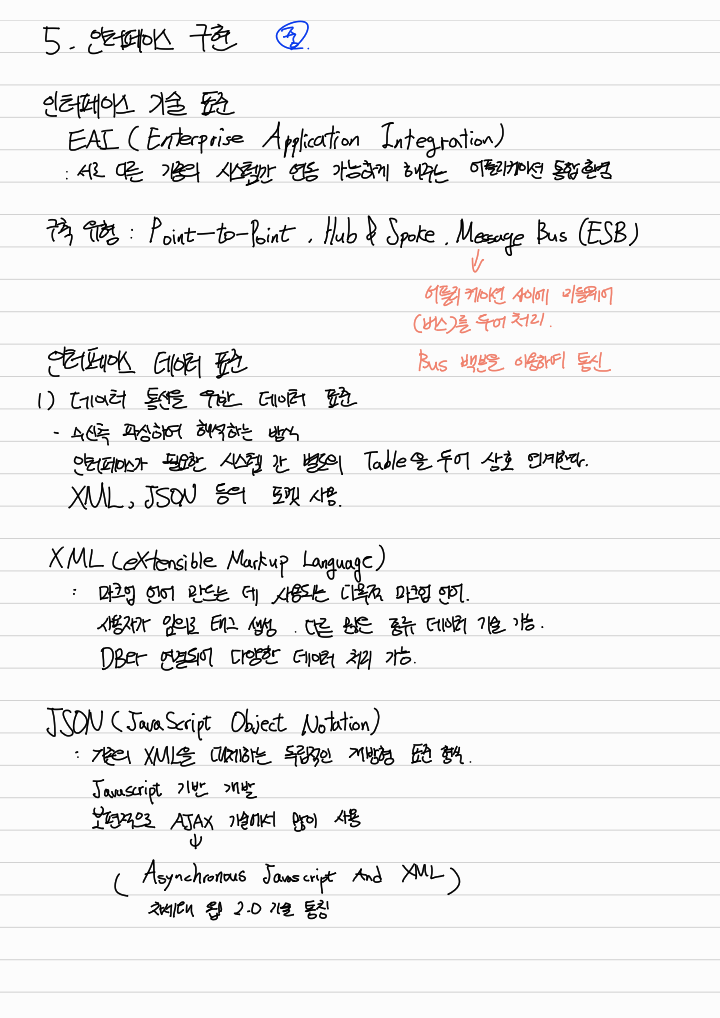 5. 인터페이스 구현 중.
인터페이스 기술 표준
EAI (Enterprise Application Integration)
: 서로 다른 기종의 시스템간 연동 가능하게 해주는 어플리케이션 통합 환경
구축 유형 : Point-to-Point, Hub & Spoke, Message Bus (ESB)
↓
어플리케이션 사이에 미들웨어
(버스)를 두어 처리.
Bus 백본을 이용하여 통신
인터페이스 데이터 표준
1) 데이터 통신을 위한 데이터 표준
- 수신측 파싱하여 해석하는 방식
인터페이스가 필요한 시스템 간 별도의 Table을 두어 상호 연계한다.
XML, JSON 등의 포맷 사용.
XML (eXtensible Markup Language)
: 마크업 언어 만드는 데 사용되는 다목적 마크업 언어.
사용자가 임의로 태그 생성. 다른 많은 종류 데이터 기술 가능.
DB와 연결되어 다양한 데이터 처리 가능.
JSON (JavaScript Object Notation)
: 기존의 XML을 대체하는 독립적인 개방형 표준 형식.
Javascript 기반 개발
보편적으로 AJAX 기술에서 많이 사용
↓
( Asynchronous Javascript And XML )
차세대 웹 2.0 기술 통칭